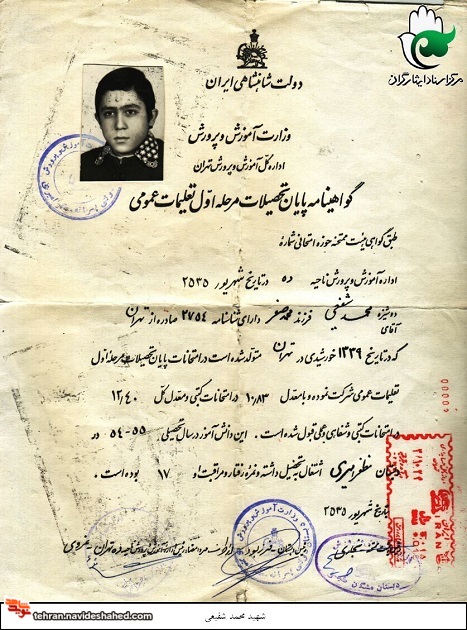 مرکز اسناد ایثارگران
دولت شاهنشاهی ایران
وزارت آموزش و پرورش
اداره کل آموزش و پرورش تهران
گواهینامه پایان تحصیلات مرحله اول تعلیمات عمومی
طبق گواهی هیئت ممتحنه حوزه امتحانی شماره
اداره آموزش و پرورش ناحیه ده در تاریخ شهریور ۲۵۳۵
دوشیزه
آقای محمد شفیعی فرزند محمد صفر دارای شناسنامه ۲۷۵۴ صادره از تهران
که در تاریخ ۱۳۳۹ خورشیدی در تهران متولد شده است در امتحانات پایان تحصیلات مرحله اول
تعلیمات عمومی شرکت نموده و با معدل ۱۰/۸۳ در امتحانات کتبی و معدل کل ۱۲/۴۰
در امتحانات کتبی و شفاهی و عملی قبول شده است . این دانش آموز در سال تحصیلی ۵۵-۵۴ در
دبستان مظفر امیری اشتغال بتحصیل داشته و نمره رفتار و مراقبت او ۱۷ بوده است .
بتاریخ شهریور ۲۵۳۵
دبستان
IRAN
tehran.navideshahed.com
شهید محمد شفیعی